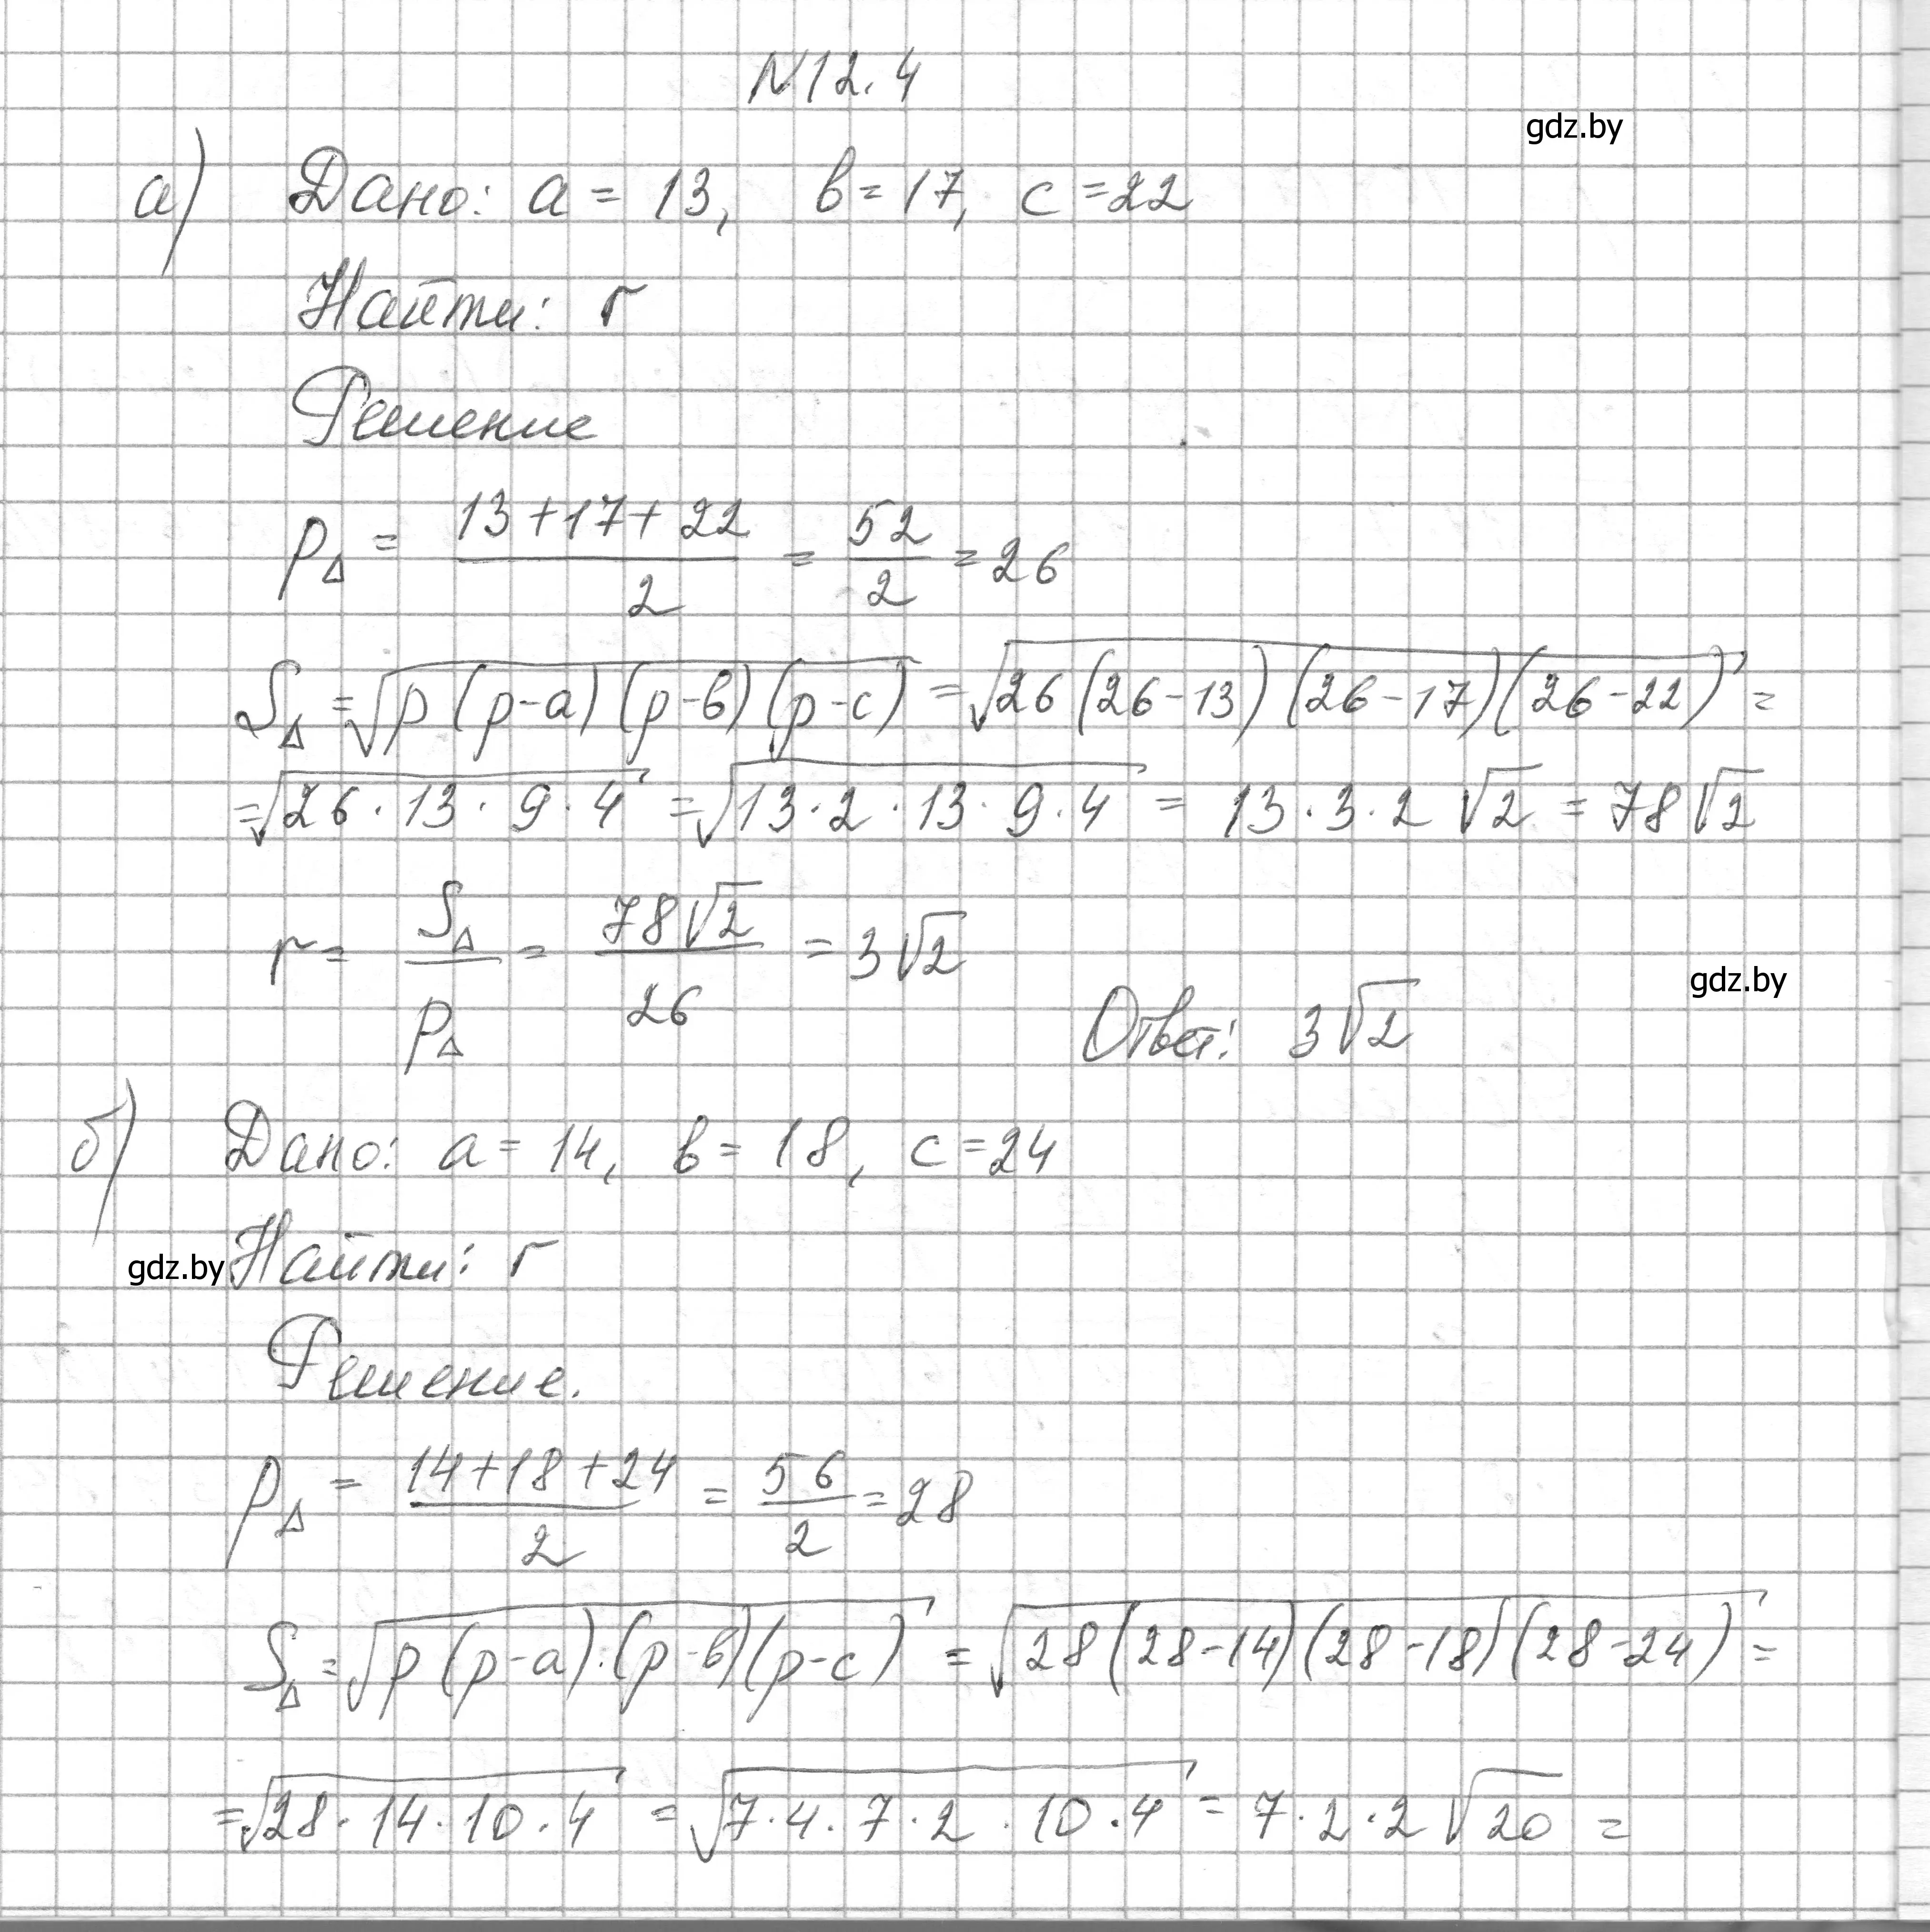 N12.4
gdz.by
а) Дано: a = 13, в = 17, c = 22
Найти: r
Решение
p△ = (13+17+22)/2 = 52/2 = 26
S△ = √(p(p-a)(p-в)(p-c)) = √(26(26-13)(26-17)(26-22)) =
= √(26·13·9·4) = √(13·2·13·9·4) = 13·3·2√2 = 78√2
r = S△/p△ = 78√2/26 = 3√2
gdz.by
Ответ: 3√2
б) Дано: a = 14, в = 18, c = 24
gdz.by Найти: r
Решение.
p△ = (14+18+24)/2 = 56/2 = 28
S△ = √(p(p-a)·(p-в)(p-c)) = √(28(28-14)(28-18)(28-24)) =
= √(28·14·10·4) = √(7·4·7·2·10·4) = 7·2·2√20 =